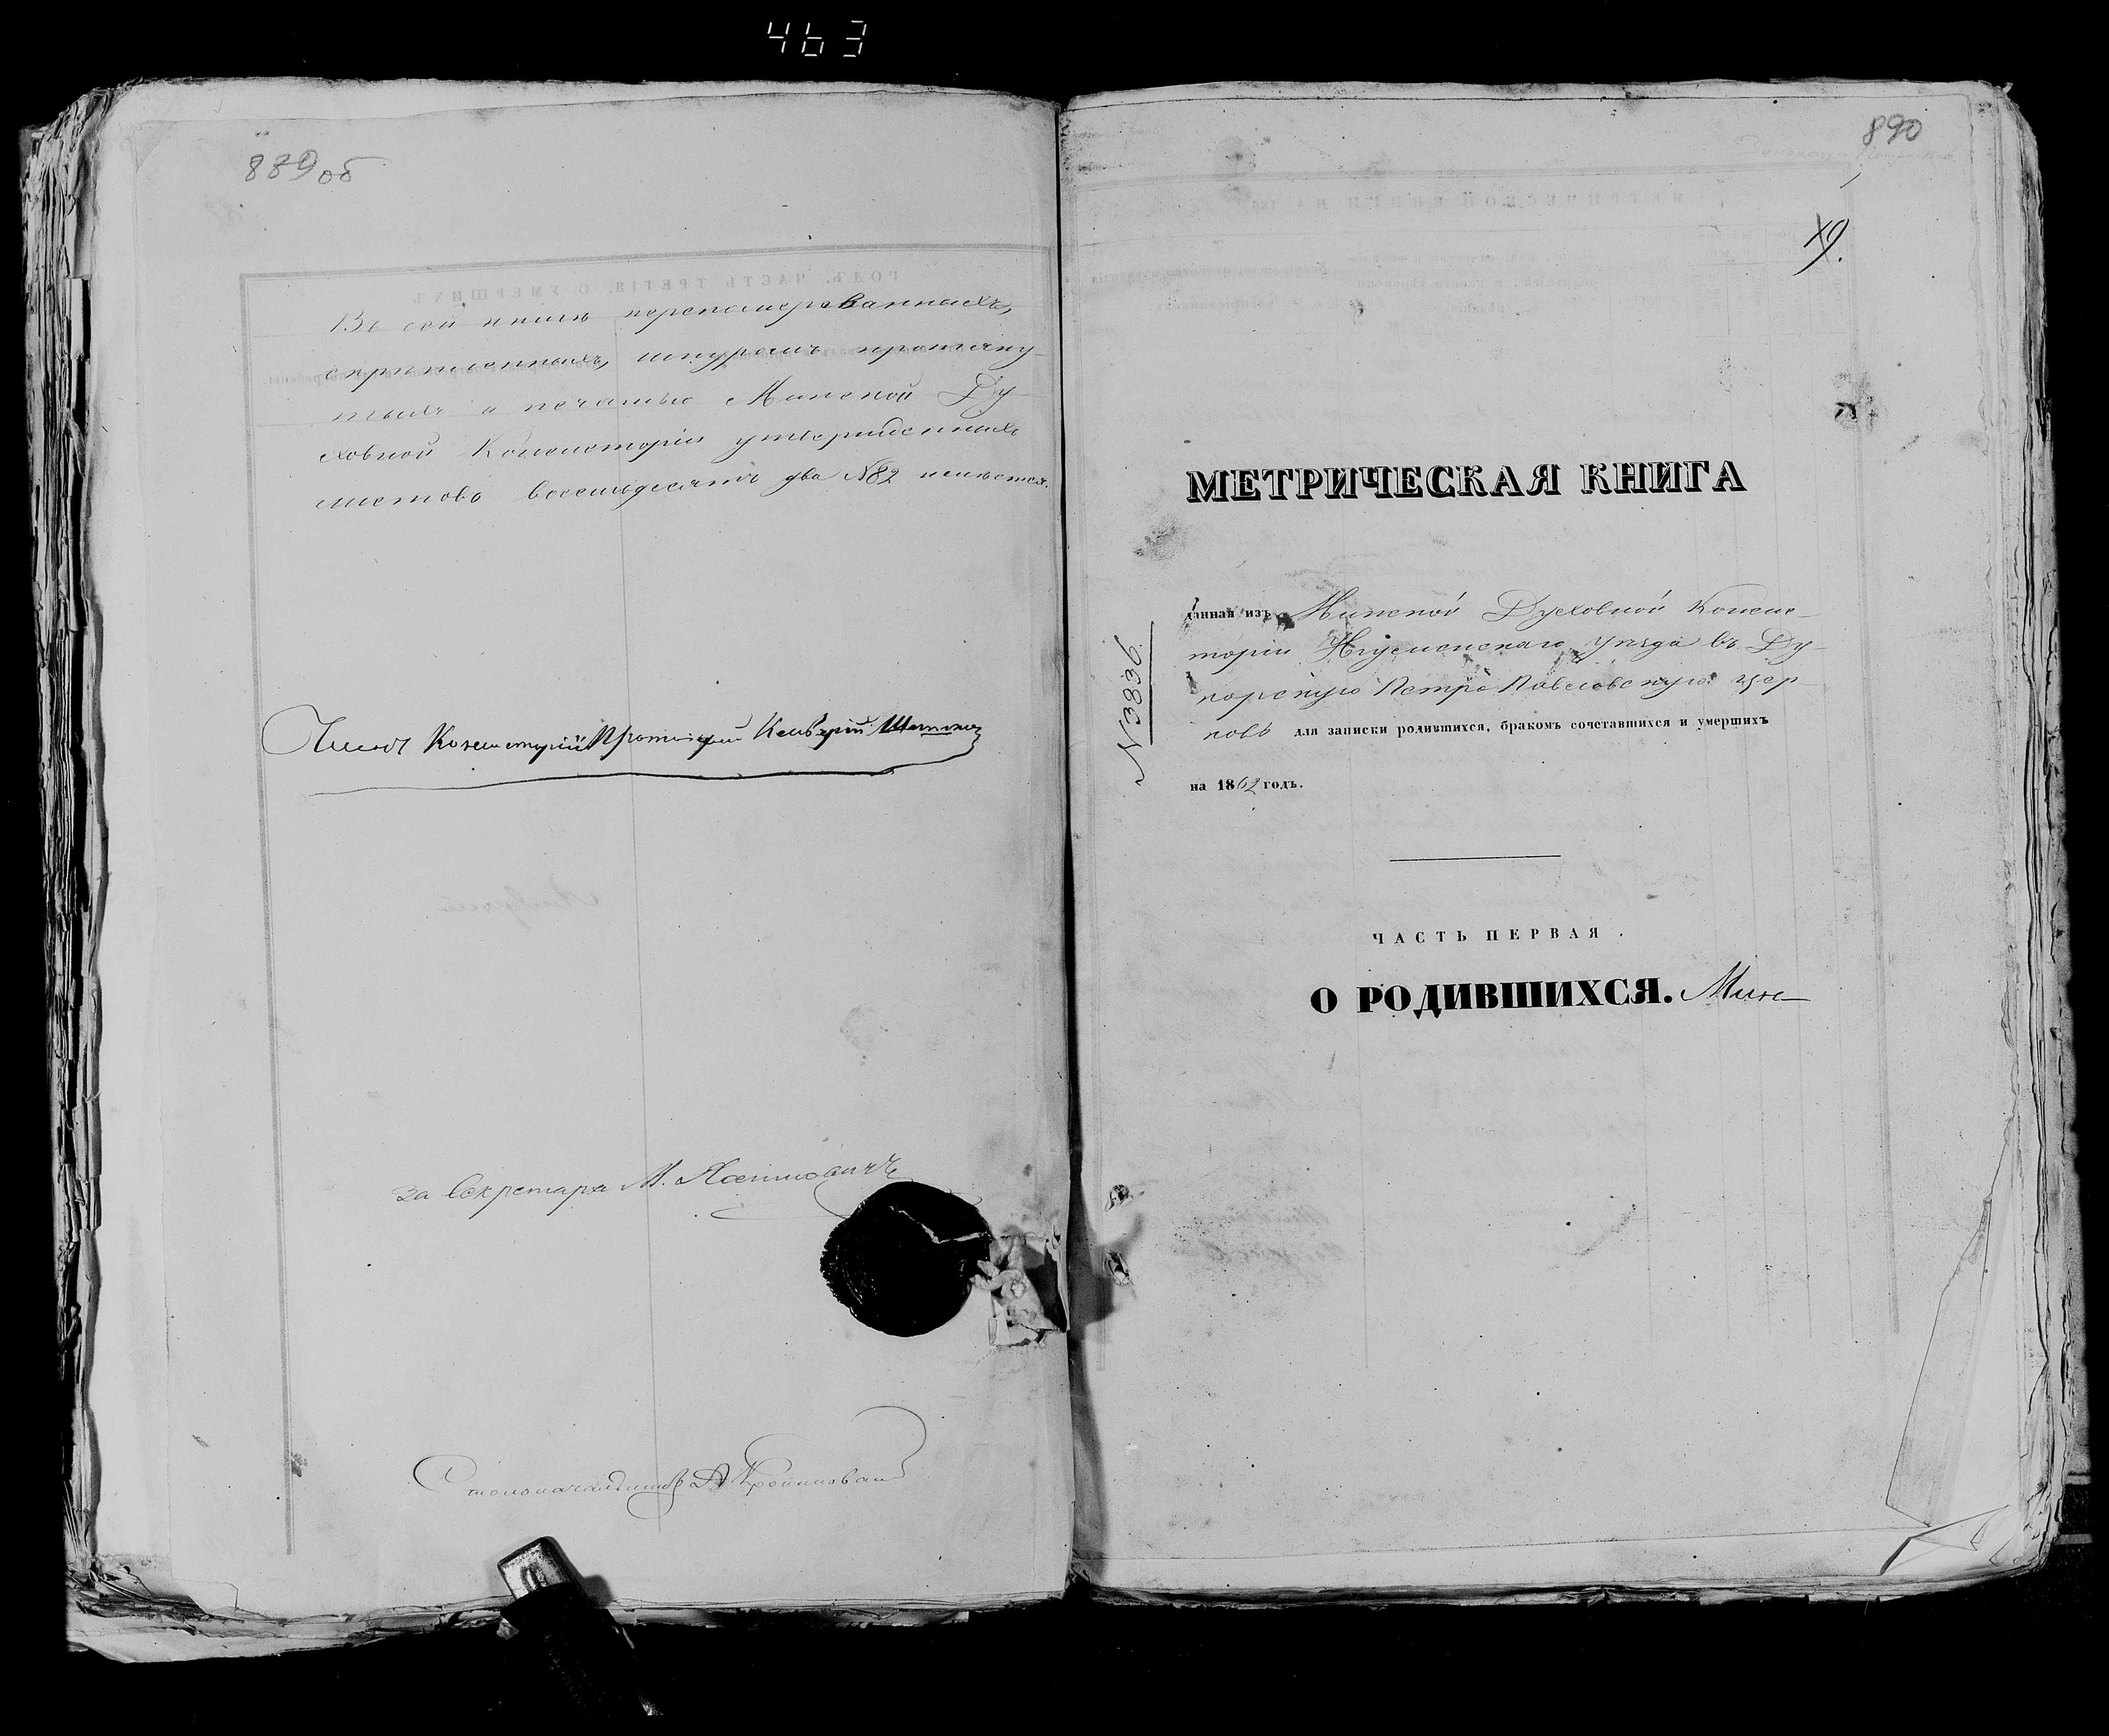 463
889об
Въ сей книгѣ переномерованныхъ,
скрѣпленныхъ, шнуромъ протяну-
тыхъ и печатью Минской Ду-
ховной Консисторіи утвержденныхъ
листовъ восемьдесятъ два №82 имѣется.
Членъ Консисторіи Протоіерей
За Секретаря М.
Столоначальникъ
890
19.
МЕТРИЧЕСКАЯ КНИГА
№3836.
данная изъ Минской Духовной Консис-
торіи Игуменскаго уѣзда въ Ду-
корскую Петро Павловскую цер-
ковь для записки родившихся, бракомъ сочетавшихся и умершихъ
на 1862 годъ.
ЧАСТЬ ПЕРВАЯ.
О РОДИВШИХСЯ.